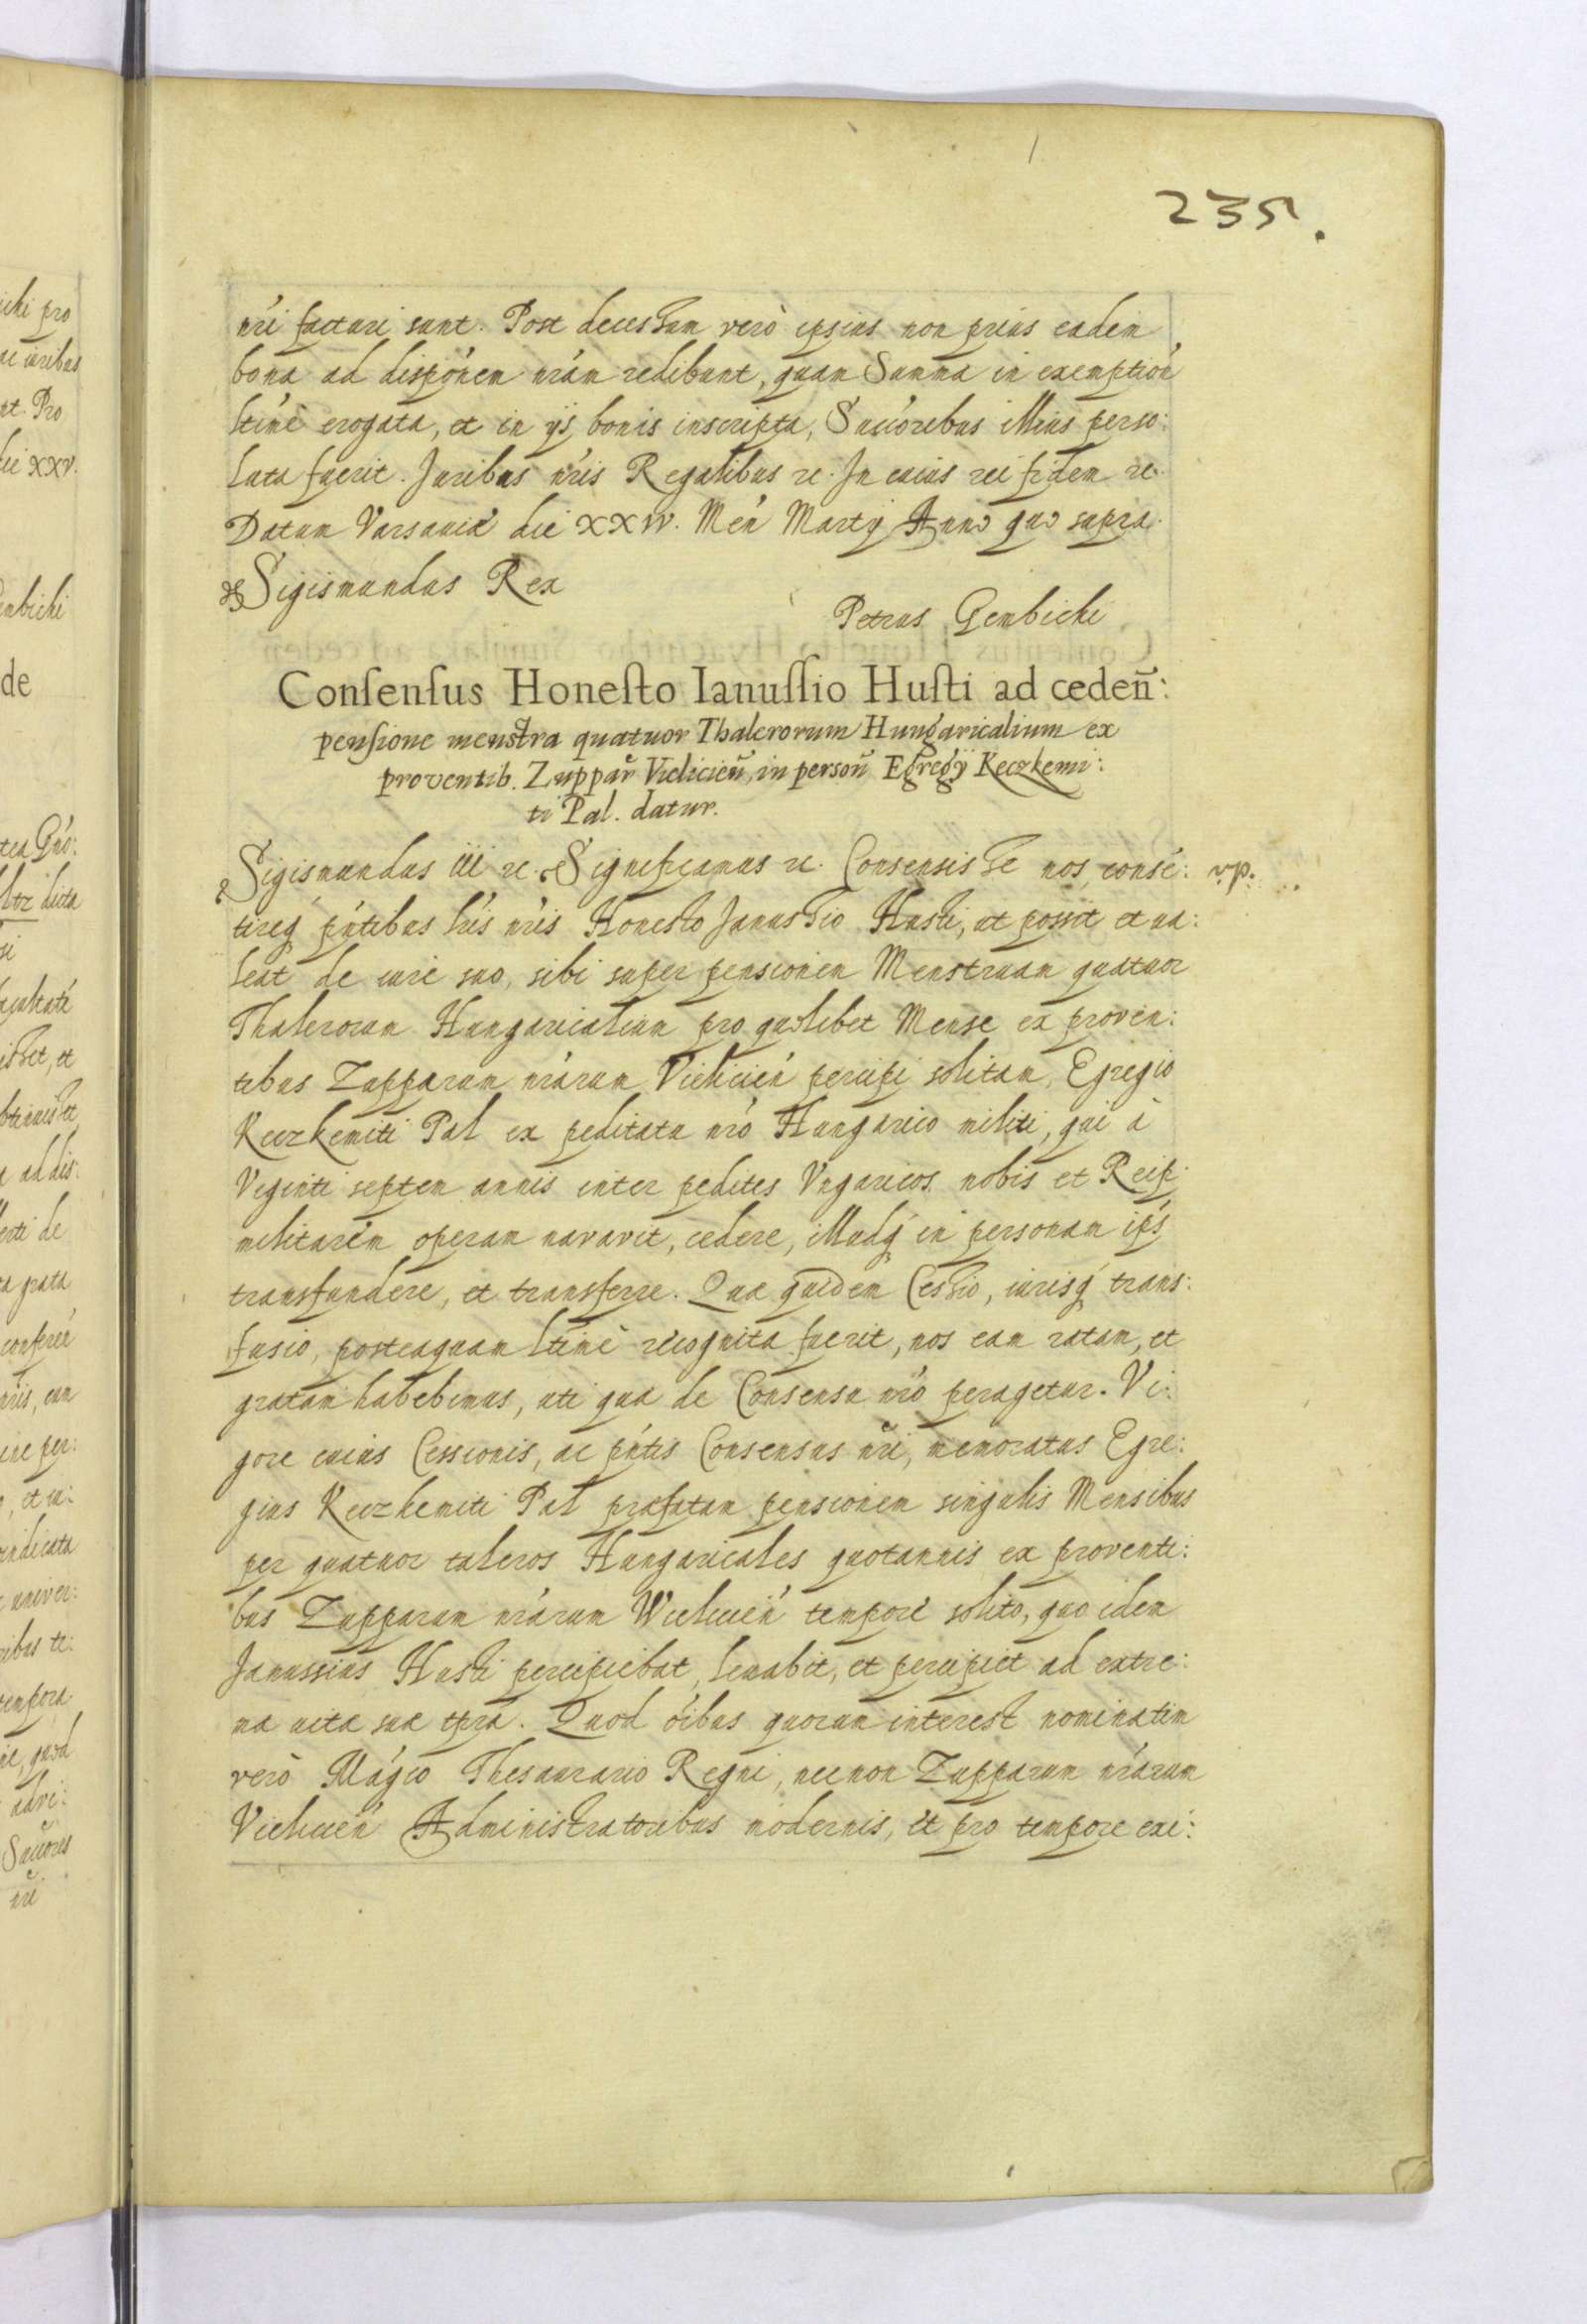 235.
nri facturi sunt. Post decessum verò ipsius non prius eadem
bona ad dispónem nrám redibunt, quam Summa in exemptioẽ
ltimè erogata, et in ijs bonis inscripta, Succoribus illius perso:
luta fuerit. Juribus nris Regalibus rc. In cuius rei fidem rc.
Datum Varsaviæ die XXIV. Men Martij Anno quo supra.
Sigismundus Rex
Petrus Gembicki
Consensus Honesto Ianussio Husti ad ceden̄:
pensione menstra quatuor Thalerorum Hungaricalium ex
proventib. Zuppar̄ Vielicien̄, in person̄ Egregÿ Keczkemi:
ti Pal. datur.
Sigismundus iii rc. Significamus rc. Consensisse nos, consé: vp.
tireq́ pn̄tibus lr̄is nr̄is Honesto Janussio Husti, ut possit et ua:
leat de iure suo, sibi super pensionem Menstruam quatuor
Thalerorum Hungaricalium pro quolibet Mense ex proven:
tibus Zupparum nrárum Vielicień percipi solitam, Egregio
Keczkemiti Pal ex peditatu nró Hungarico militi, qui à
Viginti septem annis inter pedites Vngaricos nobis et Reip:
militarem operam navavit, cedere, illudq́ in personam ips̄
transfundere, et transferre. Quæ quidem Cessio, iurisq́ trans:
fusio, posteaquam ltimè recognita fuerit, nos eam ratam, et
gratam habebimus, uti quæ de Consensu nró peragetur. Vi:
gore cuius Cessionis, ac pn̄tis Consensus nr̄i, memoratus Egre:
gius Keczkemiti Pal præfatam pensionem singulis Mensibus
per quatuor taleros Hungaricales quotannis ex proventi:
bus Zupparum nrárum Wielicień tempore solito, quo idem
Janussius Husti percipiebat, leuabit, et percipiet ad extre:
ma uitæ suæ tpra. Quod óibus quorum interest nominatim
verò Mágco Thesaurario Regni, necnon Zupparum nrárum
Vielicień Administratoribus modernis, et pro tempore exi: